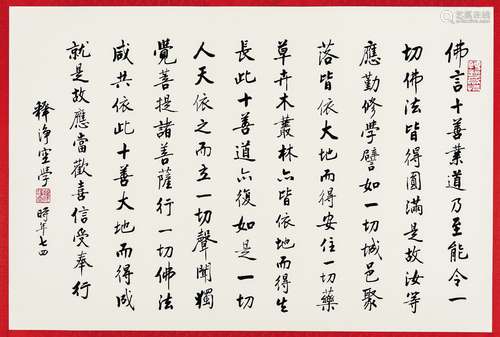 佛言十善業道乃至能令一
切佛法皆得圓滿是故汝等
應勤修學譬如一切城邑聚
落皆依大地而得安住一切藥
草卉木叢林亦皆依地而得生
長此十善道亦復如是一切
人天依之而立一切聲聞獨
覺菩提諸菩薩行一切佛法
咸共依此十善大地而得成
就是故應當歡喜信受奉行
釋淨空學
時年七四